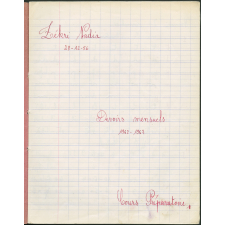 Zekri Nadia
Devoirs mensuels
1962-1963
Cours Préparatoire